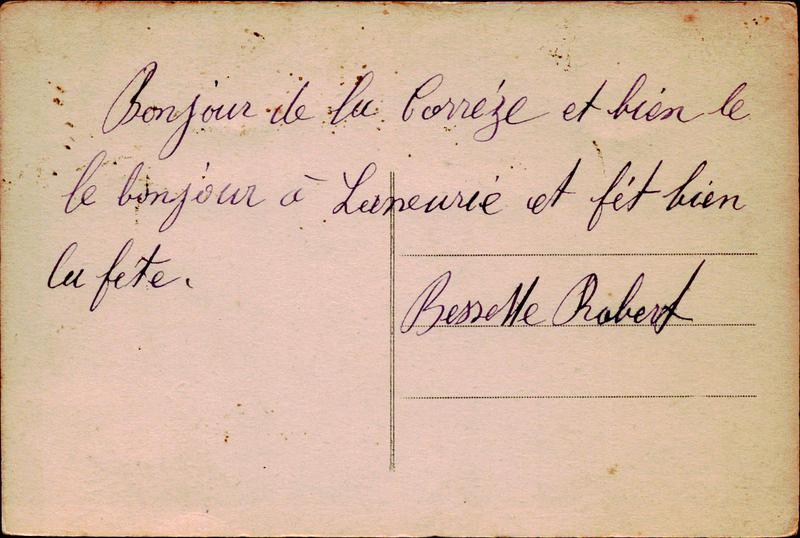 Bonjour de la Corréze et bien le
le bonjour à Laneurie et fét bien
la féte.
Bessette Robert